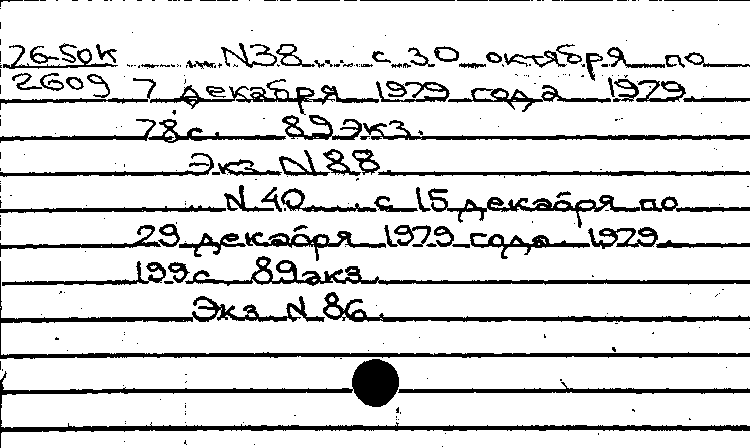 76-50к ... N38 ... с 30 октября по
2609 7 декабря 1979 года 1979.
78с. 89экз.
Экз N 88.
... N 40 ... с 15 декабря по
29 декабря 1979 года. 1979.
199с 89экз.
Экз N 86.